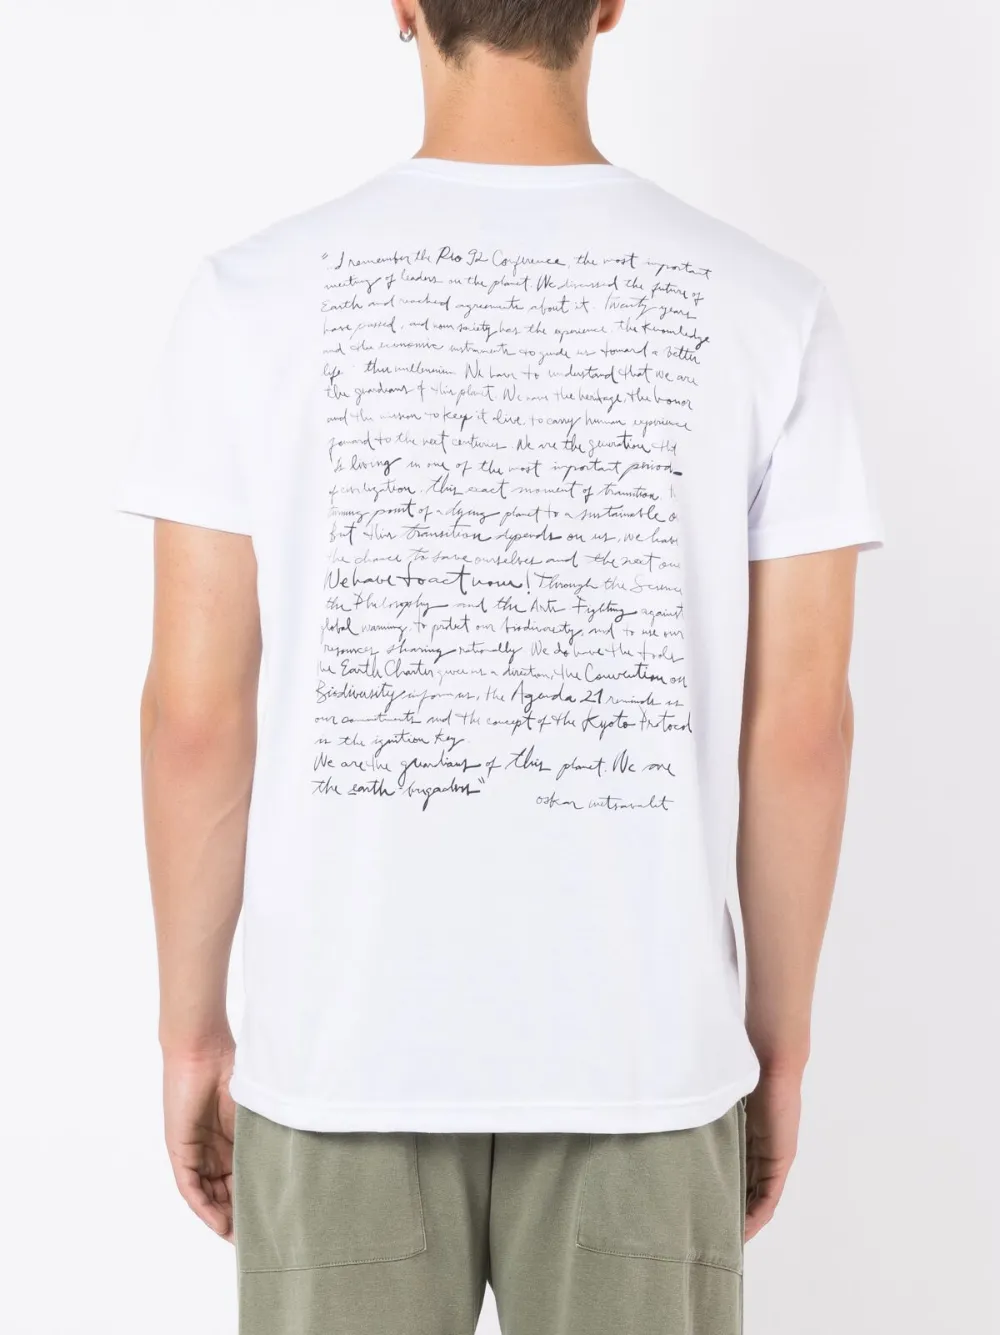 "I remember the Rio 92 Conference, the most important
meeting of leaders on the planet. We discussed the future of
Earth and reached agreements about it. Twenty years
have passed, and now society has the experience, the knowledge
and economic instruments to guide us toward a better
life this millennium. We have to understand that we are
the guardians of this planet. We have the heritage, the honor
and the mission to keep it alive, to carry human experience
forward to the next centuries. We are the generation that
is living in one of the most important periods
of civilization, this exact moment of transition
turning point of a dying planet to a sustainable
But this transition depends on us, we have
the chance to save ourselves and the next
We have to act now! Through the Science
the Philosophy and the Arts Fighting against
global warming, to protect our biodiversity, and to use our
resources sharing rationally. We do have the tools
the Earth Charter gives us a direction, the Convention on
Biodiversity inform us, the Agenda 21 reminds us
our commitments and the concept of the Kyoto Protocol
is the ignition key.
We are the guardians of this planet. We are
the earth brigadists"
oskar metsavaht